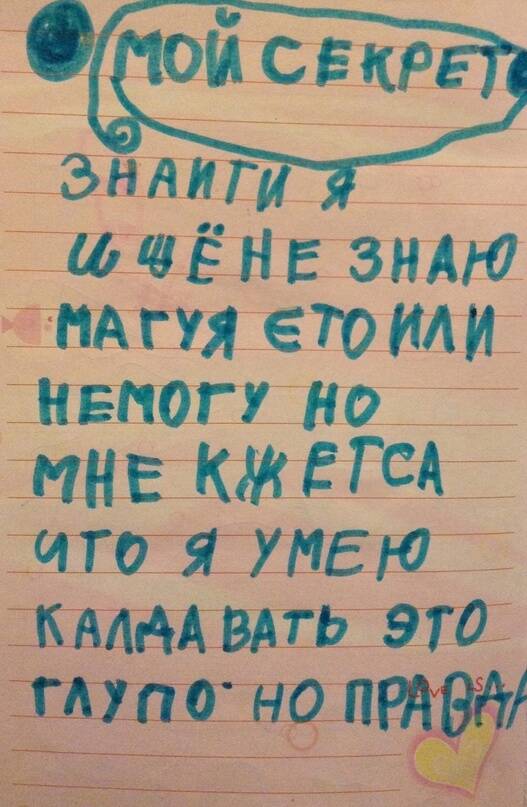 МОЙ СЕКРЕТ
ЗНАИТИ Я
ИЩЁ НЕ ЗНАЮ
МАГУ Я ЄТО ИЛИ
НЕМОГУ НО
МНЕ КЖЕТСА
ЧТО Я УМЕЮ
КАЛДАВАТЬ ЭТО
ГЛУПО НО ПРАВДА
LOVE IS